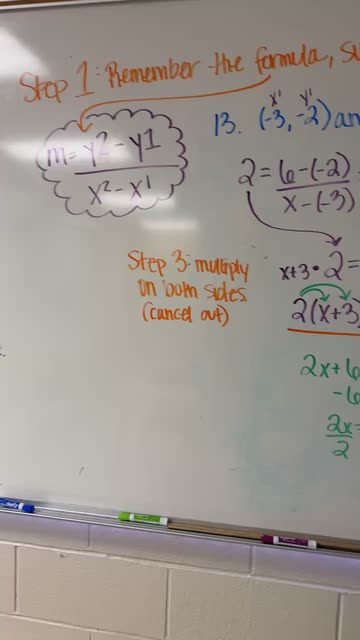 Step 1: Remember the formula, su
m = y2 - y1
x2 - x1
x1 y1
13. (-3, -2) an
2 = 6 - (-2)
x - (-3)
Step 3: multiply
on both sides
(cancel out)
x+3 • 2 =
2(x+3)
2x + 6
-6
2x =
2